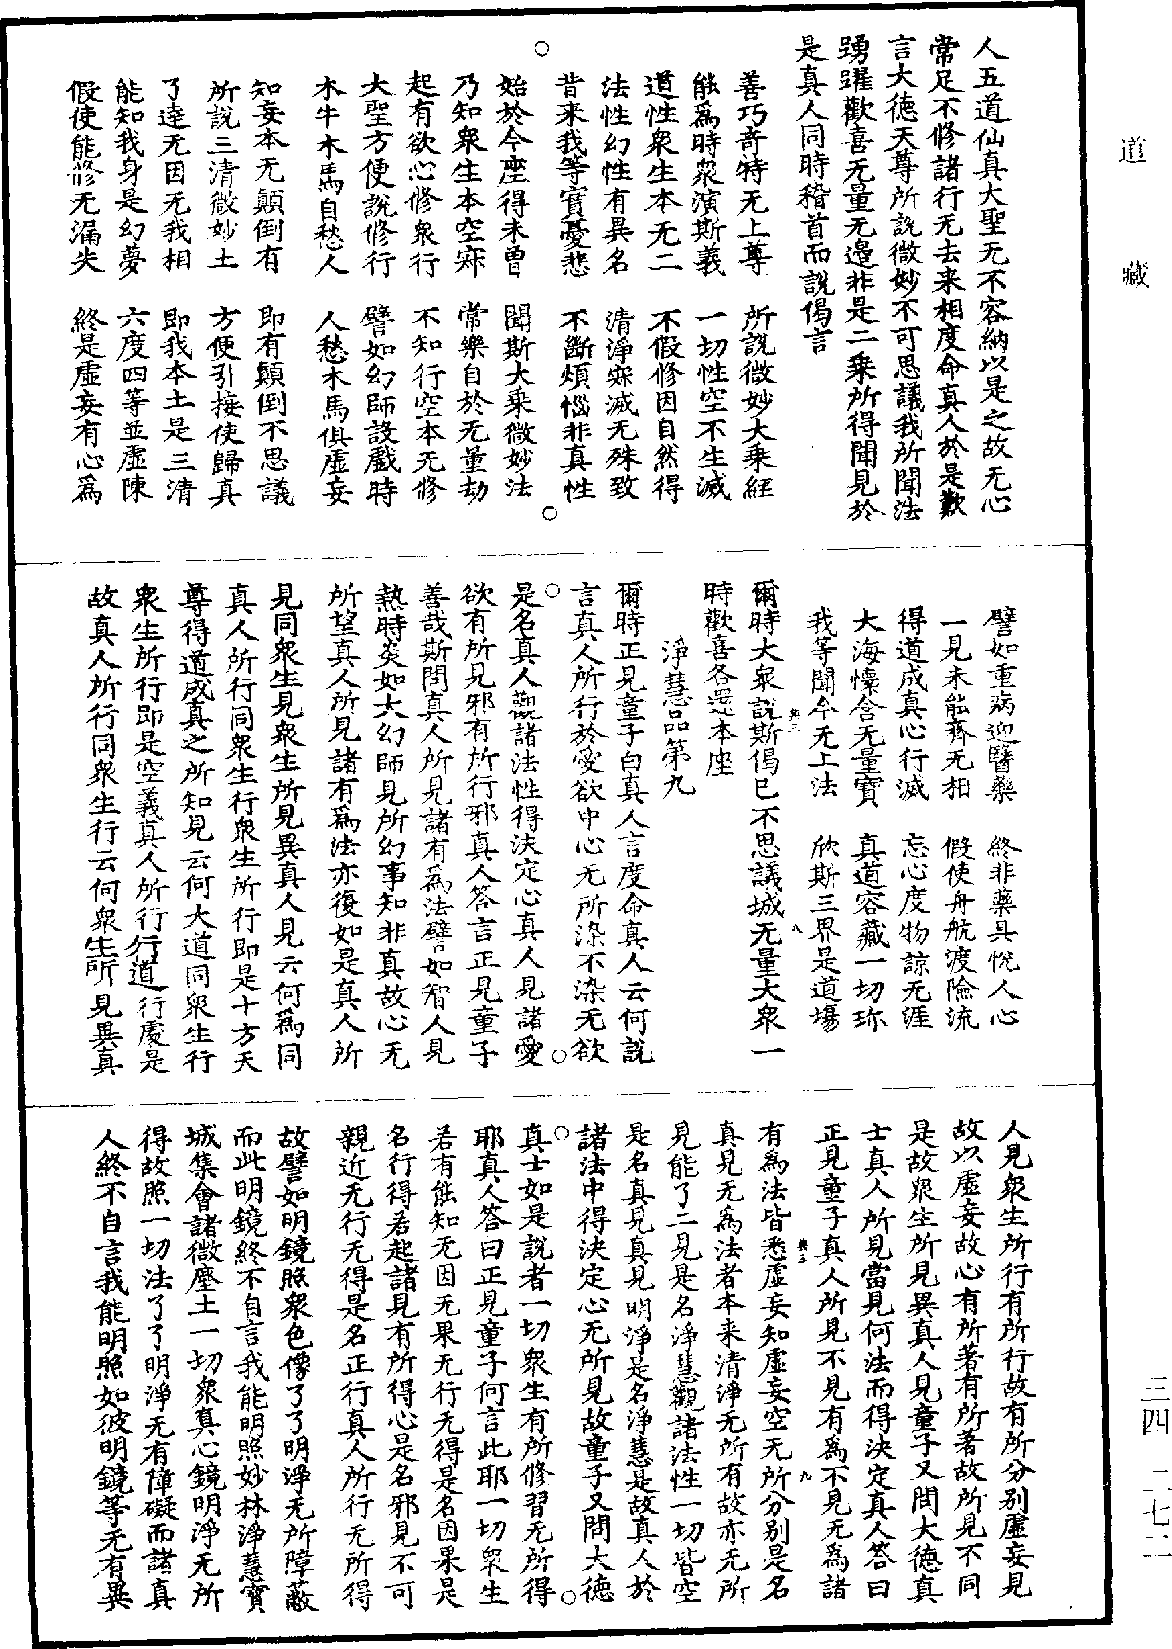 道藏
人五道仙真大聖无不容納以是之故无心
常足不修諸行无去来相度命真人於是歎
言大德天尊所說微妙不可思議我所聞法
踴躍歡喜无量无邊非是二乘所得聞見於
是真人同時稽首而說偈言
善巧奇特无上尊　所說微妙大乘經
能爲時衆演斯義　一切性空不生滅
道性衆生本无二　不假修因自然得
法性幻性有異名　清淨寂滅无殊致
昔来我等實憂悲　不斷煩惱非真性
始於今座得未曾　聞斯大乘微妙法
乃知衆生本空寂　常樂自於无量劫
起有欲心修衆行　不知行空本无修
大聖方便說修行　譬如幻師設戲時
木牛木馬自愁人　人愁木馬俱虛妄
知妄本无顛倒有　即有顛倒不思議
所說三清微妙土　方便引接使歸真
了達无因无我相　即我本土是三清
能知我身是幻夢　六度四等並虛陳
假使能修无漏失　終是虛妄有心爲
譬如重病迎醫藥　終非藥具悅人心
一見未能齊无相　假使舟航渡險流
得道成真心行滅　忘心度物諒无涯
大海懷含无量寶　真道容藏一切珎
我等聞今无上法　欣斯三界是道場
爾時大衆說斯偈已不思議城无量大衆一
時歡喜各還本座
淨慧品第九
爾時正見童子白真人言度命真人云何說
言真人所行於愛欲中心无所染不染无欲
是名真人觀諸法性得決定心真人見諸愛
欲有所見邪有所行邪真人答言正見童子
善哉斯問真人所見諸有爲法譬如智人見
熱時炎如大幻師見所幻事知非真故心无
所望真人所見諸有爲法亦復如是真人所
見同衆生見衆生所見異真人見云何爲同
真人所行同衆生行衆生所行即是十方天
尊得道成真之所知見云何大道同衆生行
衆生所行即是空義真人所行行道行處是
故真人所行同衆生行云何衆生所見異真
人見衆生所行有所行故有所分别虛妄見
故以虛妄故心有所著有所著故所見不同
是故衆生所見異真人見童子又問大德真
士真人所見當見何法而得決定真人答曰
正見童子真人所見不見有爲不見无爲諸
有爲法皆悉虛妄知虛妄空无所分别是名
真見无爲法者本来清淨无所有故亦无所
見能了二見是名淨慧觀諸法性一切皆空
是名真見真見明淨是名淨慧是故真人於
諸法中得決定心无所見故童子又問大德
真士如是說者一切衆生有所修習无所得
耶真人答曰正見童子何言此耶一切衆生
若有能知无因无果无行无得是名因果是
名行得若起諸見有所得心是名邪見不可
親近无行无得是名正行真人所行无所得
故譬如明鏡照衆色像了了明淨无所障蔽
而此明鏡終不自言我能明照妙林淨慧寶
城集會諸微塵土一切衆真心鏡明淨无所
得故照一切法了了明淨无有障礙而諸真
人終不自言我能明照如彼明鏡等无有異
三四　二七二